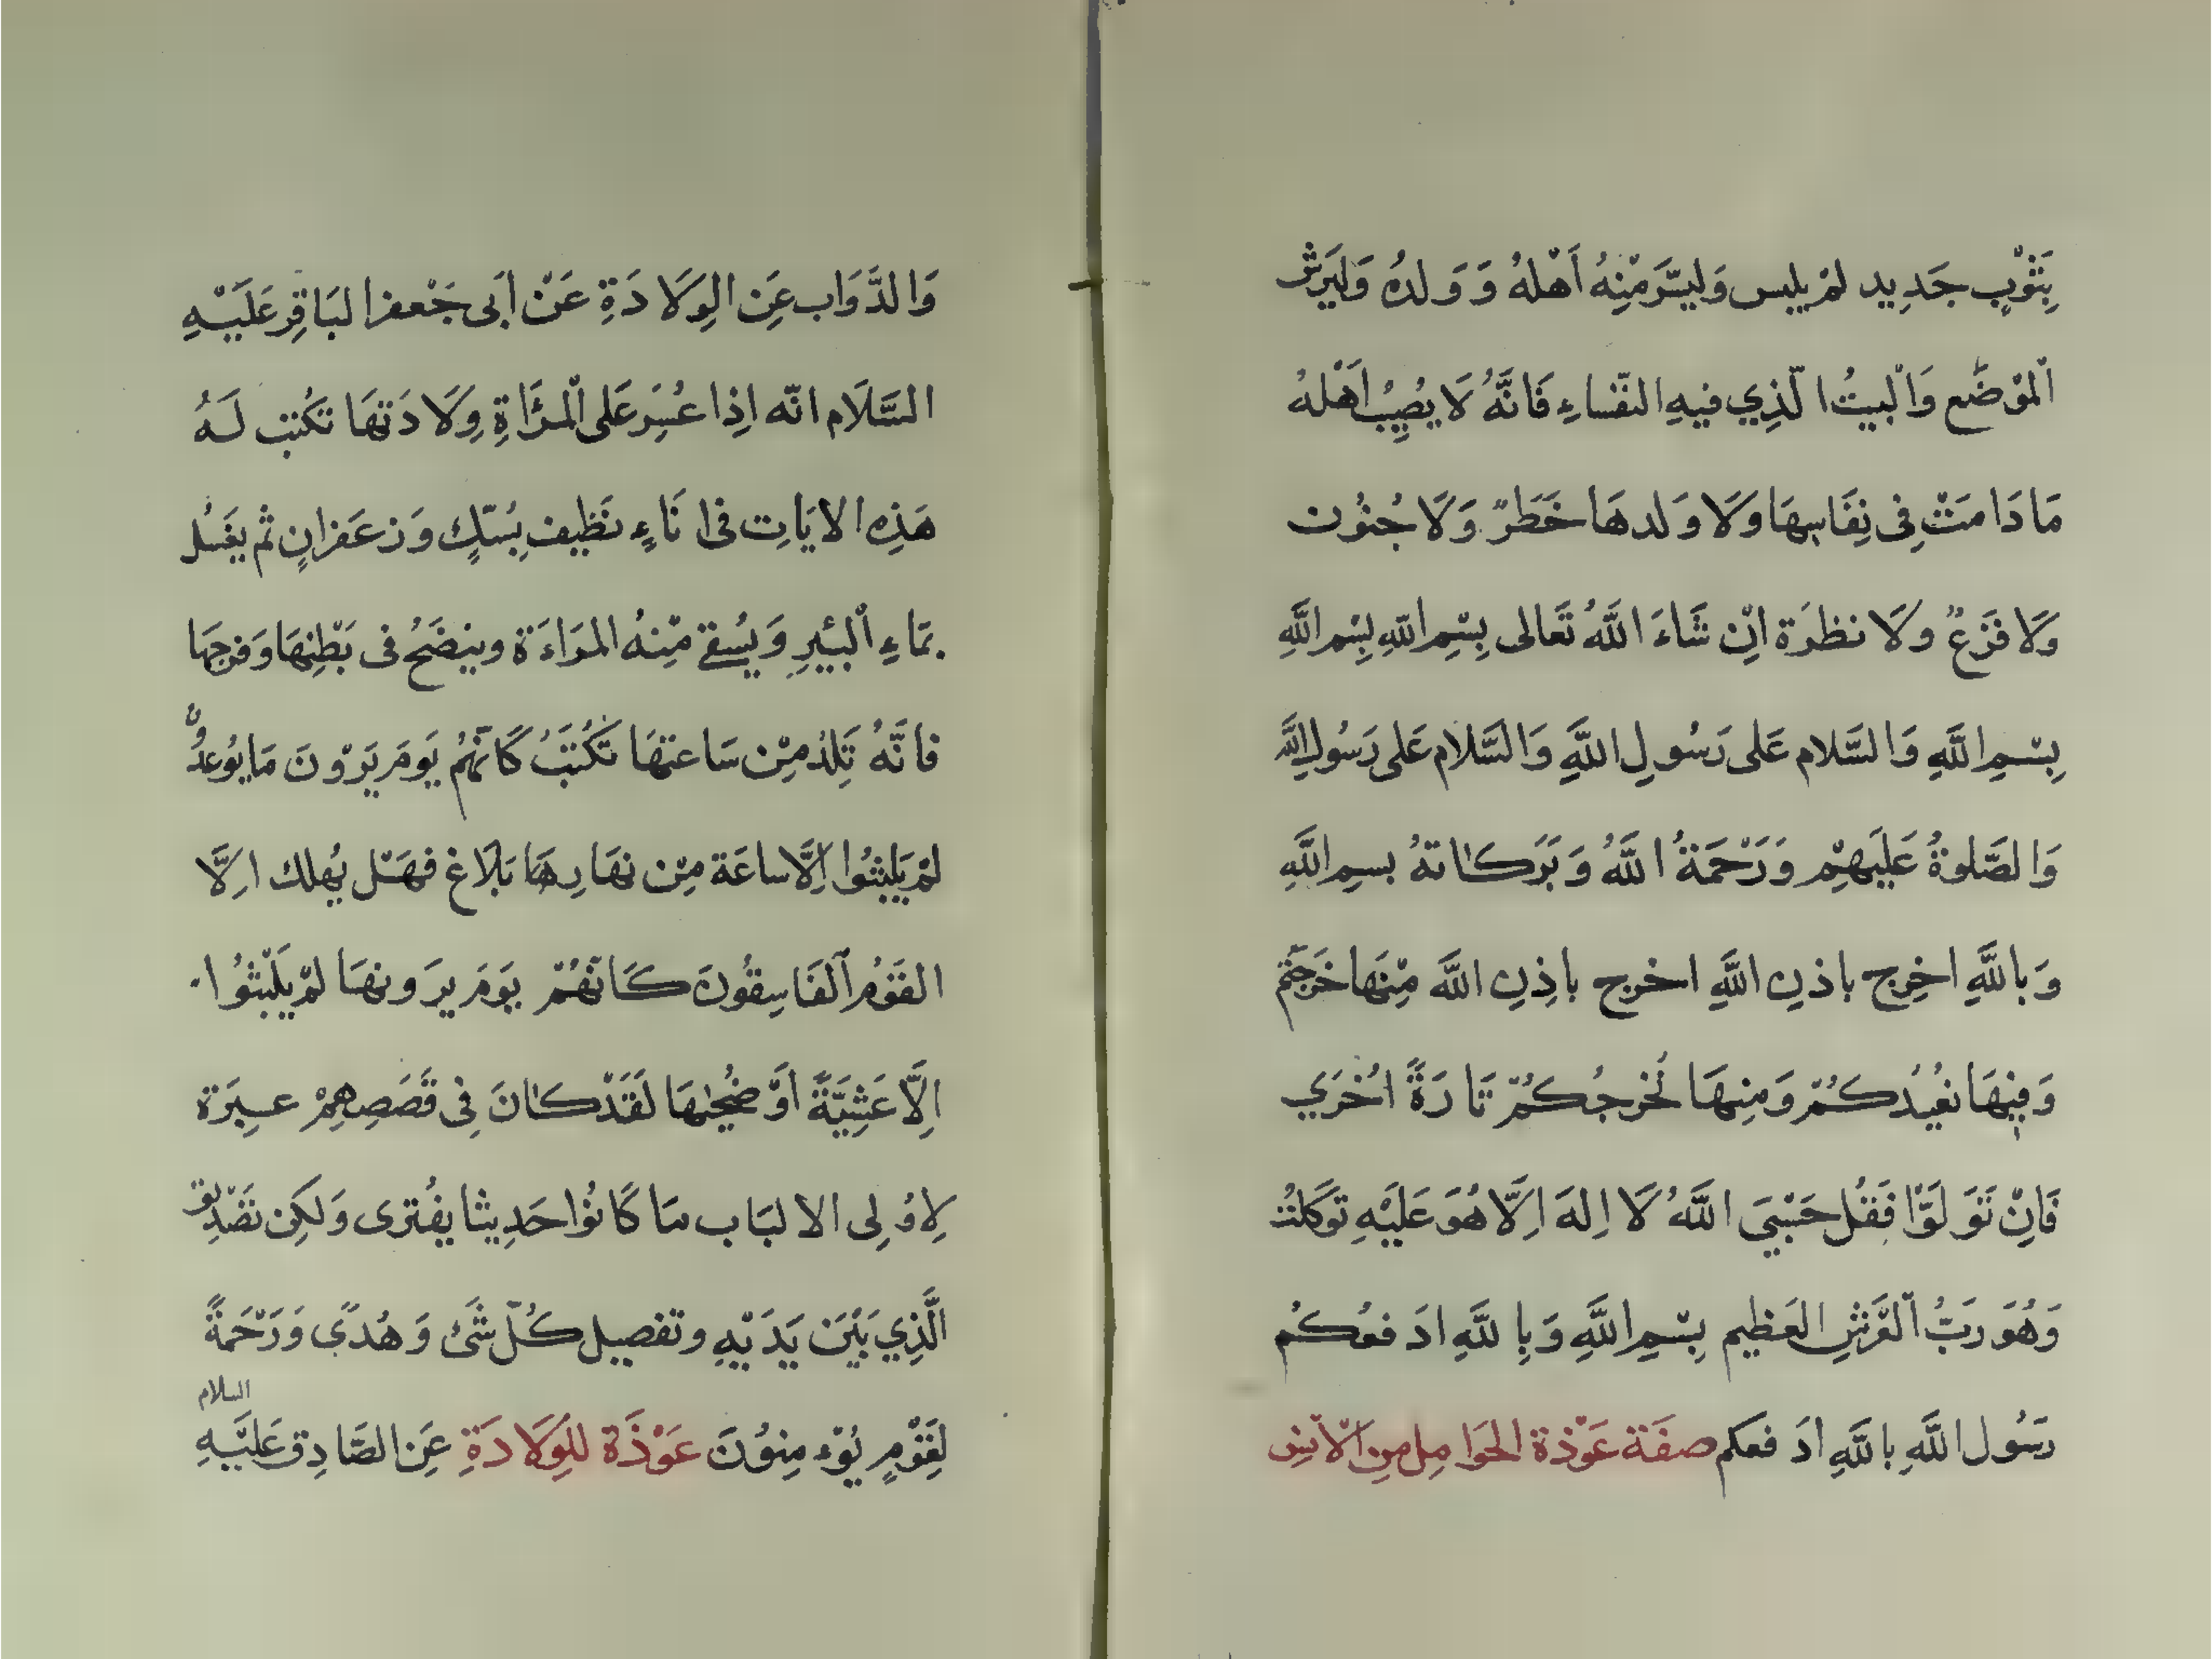 بِثَوْبٍ جَدِيد لمْ يلبس وَليسَّرَمْنِهُ أَهْلهُ وَ وَلدُه وَليَرش
اَلموْضَع وَاْلبيتُ الّذِي فيهِ النّفساءِ فَانَّهُ لَا يصُيِبُ اَهْلهُ
مَا دَا مَتْ فِى نِفَاسِهَا وَلَا وَلدهَا خَطَرٌ وَلَا جُنوُن
وَلَا فَزَعٌ وَلَا نظرَة اِنْ شَاءَ اللَّهُ تَعالى بِسْمِ اللّهِ بِسْمِ اللَّهِ
بِسْمِ اللَّهِ وَالسَّلام عَلى رَسُولِ اللَّهِ وَالسَّلام عَلى رَسُولِ اللَّهِ
وَالصَّلوةُ عَليَهْمِ وَرَحْمَةُ اللَّهُ وَبَرَكاتهُ بسمِ اللَّهِ
وَباللَّهِ اخِرج باذنِ اللَّهِ اخرج باِذنِ اللَّه مِنْهَا خَرجتم
وَفيِهَا نعُيدُكُمْ وَمِنهَا نُخرجُكُمْ تَا رَةً اُخْرَي
فَاِنْ تَوَلَوَّا فَقُل حَسْبِيَ اللَّهُ لَا اِلهَ اِلَّا هُوَ عَليَهِ تَوكَلتُ
وَهُوَ رَبُّ اَلعَرْشِ العَظيم بِسْمِ اللَّهِ وَبِاللَّهِ ادَ فعُكُم
رَسُول اللَّهِ باللَّهِ ادَ فعكم صفَة عَوْذة الحَوَامِل مِن الاْنس
وَالدَّوَاب عَنِ الوِلَادَةِ عَنْ اَبى جَعْفر البَاقِر عَليَهِ
السَّلَام انّه اِذا عسُرَ عَلى اْلمرَأَةِ وِلَادَتهَا تكُتب لَهُ
هَذِه الايَاتِ فى انَاءٍ نَظِيف بمُسْكٍ وَزعَفرانٍ ثم يغَسُل
بمَاءِ اْلبئِيرِ وَيسُقى مْنِهُ المَراءَة وينضَحُ فى بَطْنِهَا وَفرجِهَا
فانَّهُ تَلِدُ مِنْ سَاعتهَا تَكُتبَ كَانَهُم يَومَ يَرَوْنَ مَا يوُعدُونَ
لمْ يَلبثوُا اِلَّا ساعَة مِنْ نهَارٍ هَا بَلَاغ فهَل يُهلك اِلَّا
القَوُم اَلفَاسِقُونَ كَانَهُمْ يوَمَ يرَونهَا لمْ يَلْبثوُا
اِلَّا عَشِيَّةً اَوْ ضُحٰيهَا لَقَدْ كَانَ فِى قَصَصِهِمْ عِبرَة
لِاوُلِى الالبَاب مَا كَانوُا حَدِيثا يفُترى وَلكِن تَصَديق
الَّذِي بَيْنَ يَدَيْهِ وتفصيل كُلّ شَئ وَهُدىً وَرَحْمَةً
لِقَوْمٍ يُؤْمِنوُنَ عَوْذَة للوِلَادَةِ عَنِ الصَّادِق عَليَهِ السلام